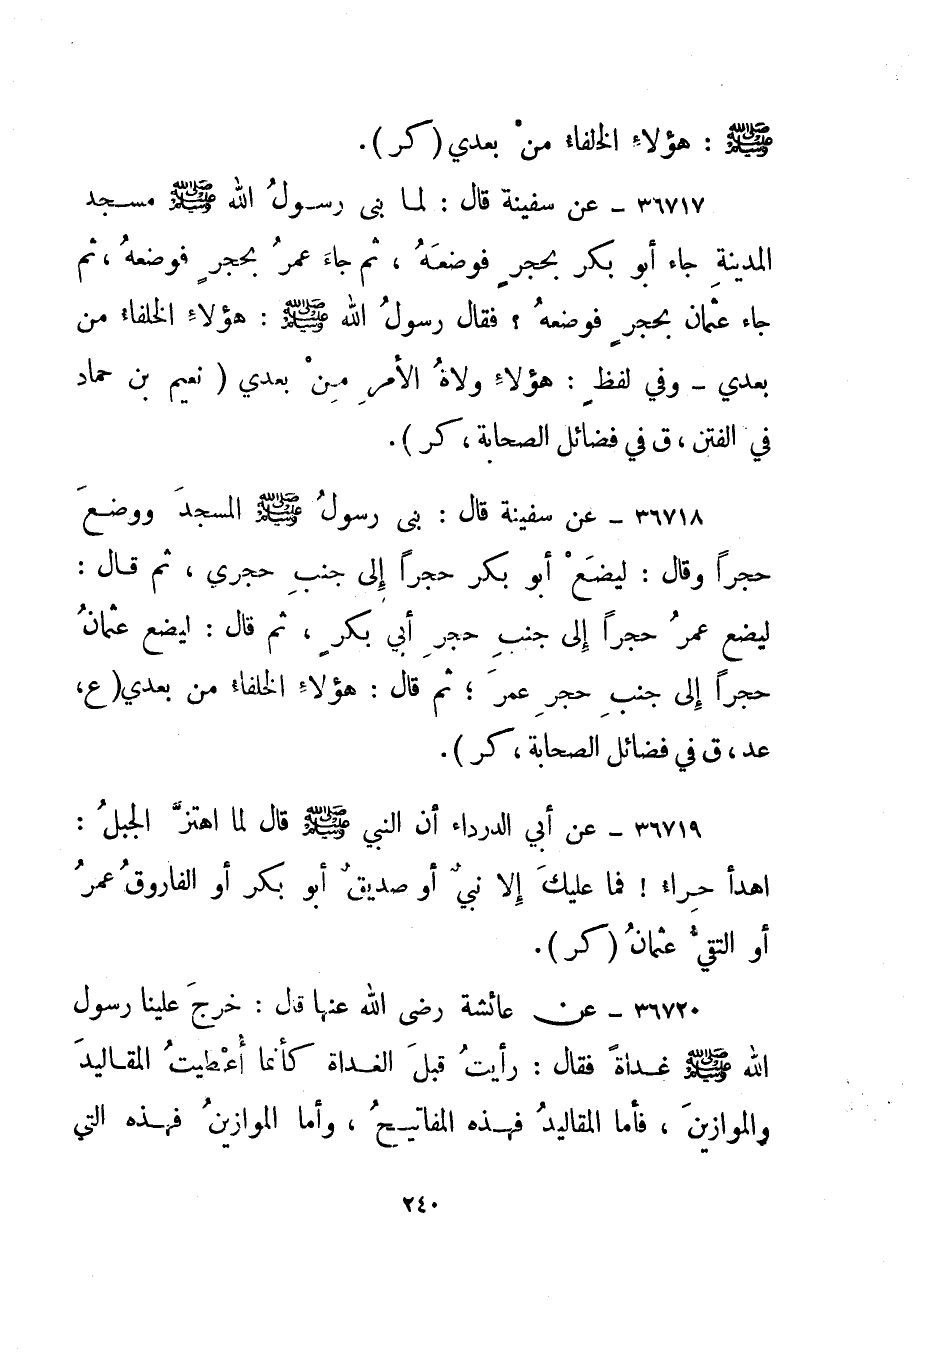 ﷺ : هؤلاءِ الخلفاء منْ بعدي (كر).
٣٦٧١٧ ـ عن سفينة قال : لما بنى رسولُ الله ﷺ مسجد
المدينةِ جاء أبو بكر بحجرٍ فوضعَهُ ، ثم جاءَ عمرُ بحجرٍ فوضعهُ ، ثم
جاء عثمان بحجرٍ فوضعهُ ؟ فقال رسولُ الله ﷺ : هؤلاءِ الخلفاء من
بعدي ـ وفي لفظٍ : هؤلاءِ ولاةُ الأمرِ مِنْ بعدي ( نعيم بن حماد
في الفتن ، ق في فضائل الصحابة ، كر ).
٣٦٧١٨ ـ عن سفينة قال : بنى رسولُ ﷺ المسجدَ ووضعَ
حجراً وقال : ليضَعْ أبو بكر حجراً إِلى جنبِ حجري ، ثم قال :
ليضع عمرُ حجراً إِلى جنبِ حجرِ أبي بكرٍ ، ثم قال : ليضع عثمانُ
حجراً إِلى جنبِ حجرِ عمرَ ؛ ثم قال : هؤلاءِ الخلفاء من بعدي (ع،
عد ، ق في فضائل الصحابة ، كر ).
٣٦٧١٩ ـ عن أبي الدرداء أن النبي ﷺ قال لما اهتزَّ الجبلُ :
اهدأ حِراء ! فما عليكَ إِلا نبيٌ أو صديقٌ أبو بكر أو الفاروقُ عمرُ
أو التقيُّ عثمانُ (كر ).
٣٦٧٢٠ ـ عن عائشة رضى الله عنها قال : خرجَ علينا رسول
الله ﷺ غداةً فقال : رأيتُ قبلَ الغداة كأنما أُعْطيتُ المقاليدَ
والموازينَ ، فأما المقاليدُ فهذه المفاتيحُ ، وأما الموازينُ فهذه التي
٢٤٠